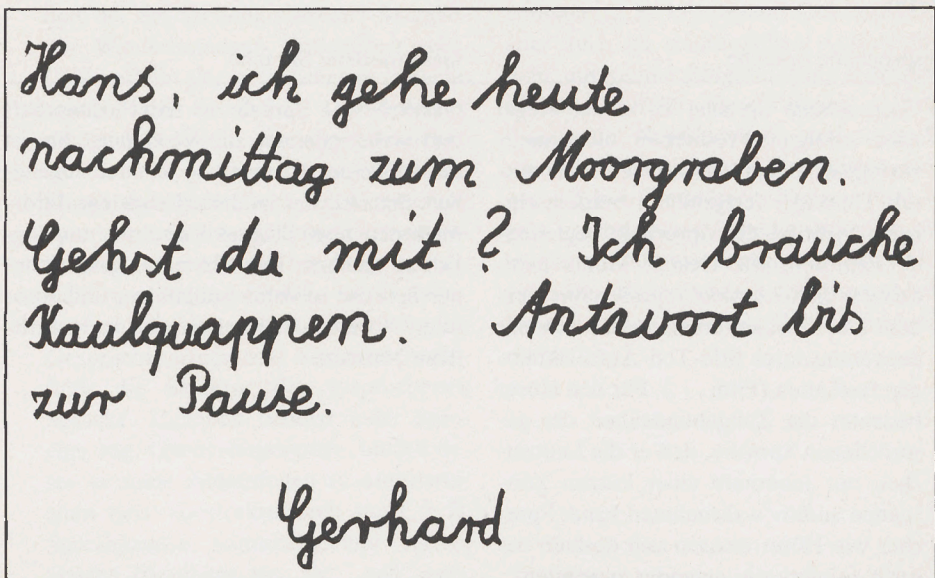 Hans, ich gehe heute
nachmittag zum Moorgraben.
Gehst du mit? Ich brauche
Kaulquappen. Antwort bis
zur Pause.
Gerhard